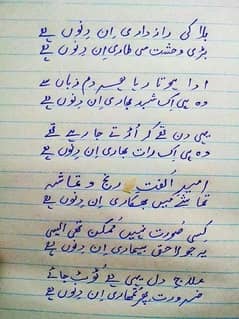 بلا کی راز داری اِن دِنوں ہے
بڑی وحشت سی طاری اِن دِنوں ہے
ادا ہوتا رہا جسے دم زباں سے
وہ ہی اک شہد بھاری اِن دِنوں ہے
یہی دن تھے کہ اُڑتے جا رہے تھے
وہ ہی اِک رات بھاری اِن دِنوں ہے
امیدِ اُلفت رنج و تماشہ
تماشے میں بھکاری اِن دِنوں ہے
کِسی صُورت نہیں مُمکن تھی ایسی
یہ جو لاحق بیماری اِن دِنوں ہے
علاجِ دل یہی ہے ٹُوٹ جائے
ضرورت پھر تمھاری اِن دِنوں ہے